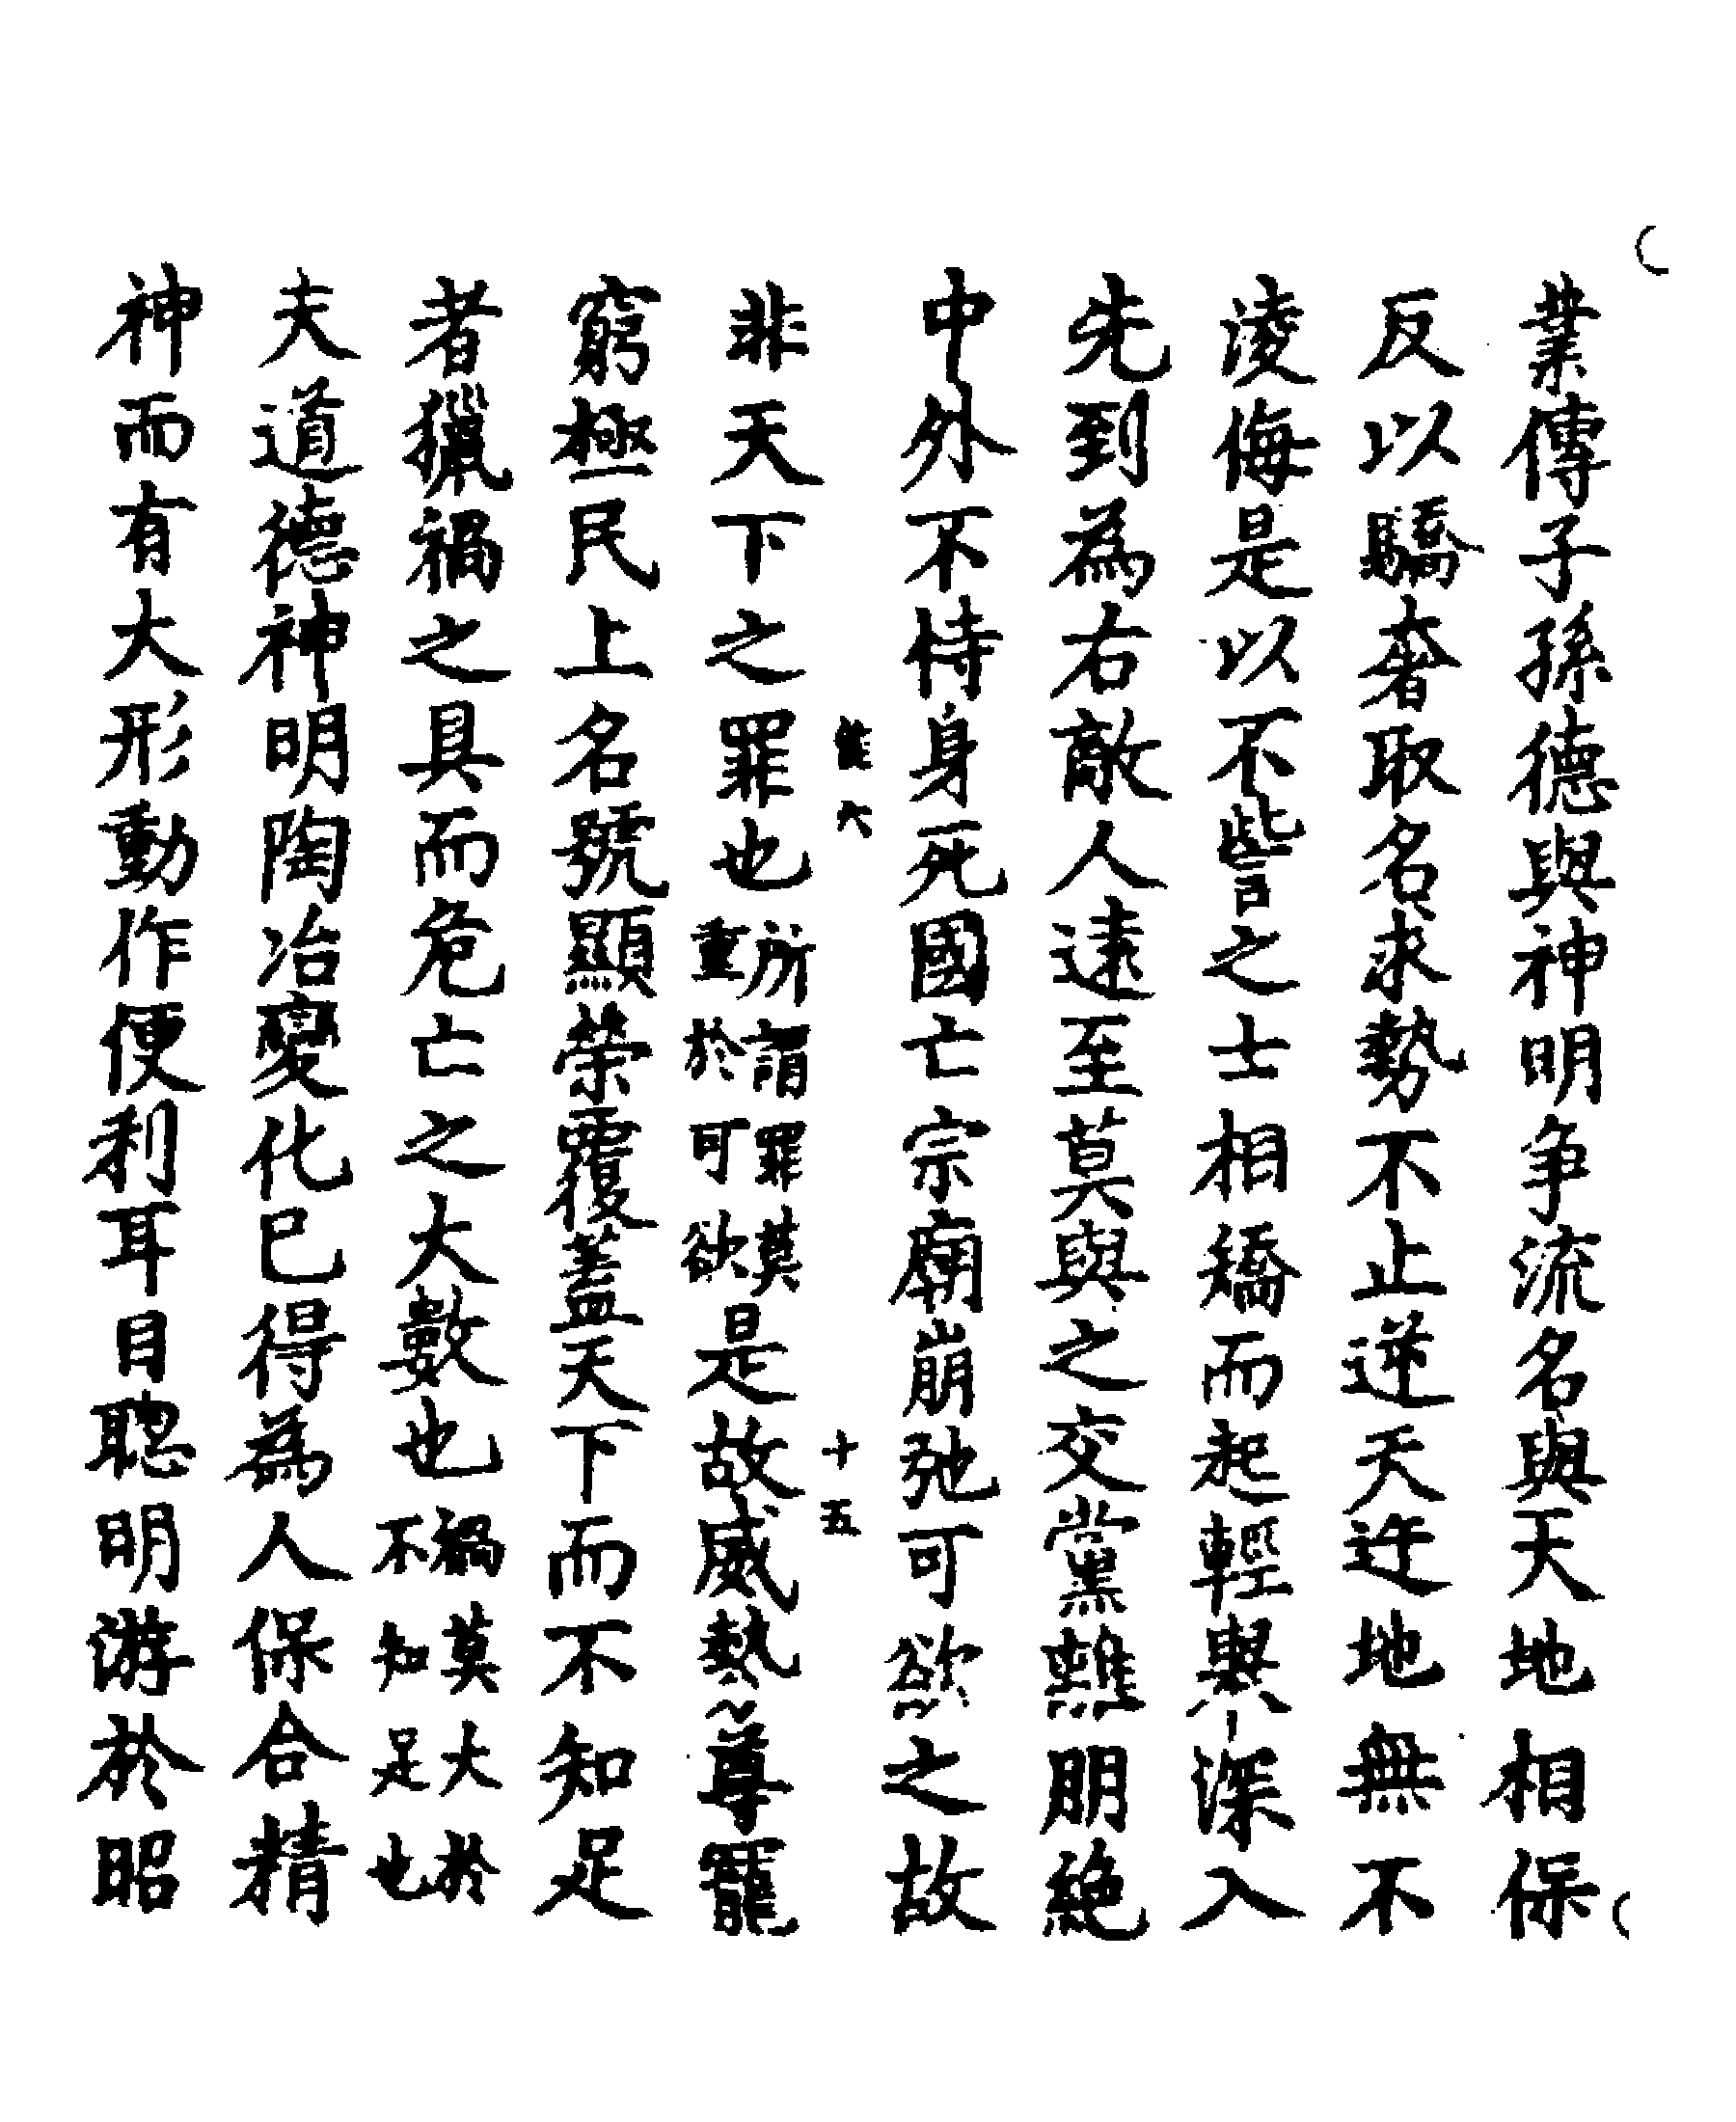 業傳子孫德與神明争流名與天地相保
反以驕奢取名求勢不止逆天迕地無不
淩侮是以不訾之士相矯而起輕舉深入
先到為右敵人遠至莫與之交黨離朋絶
中外不恃身死國亡宗廟崩弛可欲之故
十五
非天下之罪也所謂罪莫重於可欲是故威勢尊寵
窮極民上名號顯榮覆蓋天下而不知足
者獵禍之具而危亡之大數也禍莫大於不知足也
夫道德神明陶冶變化已得為人保合精
神而有大形動作便利耳目聰明游於昭